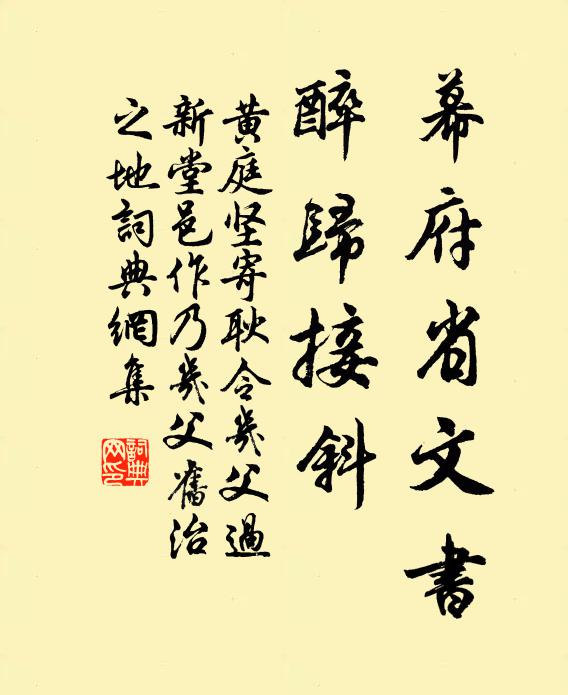 幕府省文書
醉歸接斜
黄庭坚寄耿令幾父過
新堂邑作乃幾父舊治
之地詞典網集
詞典
网印